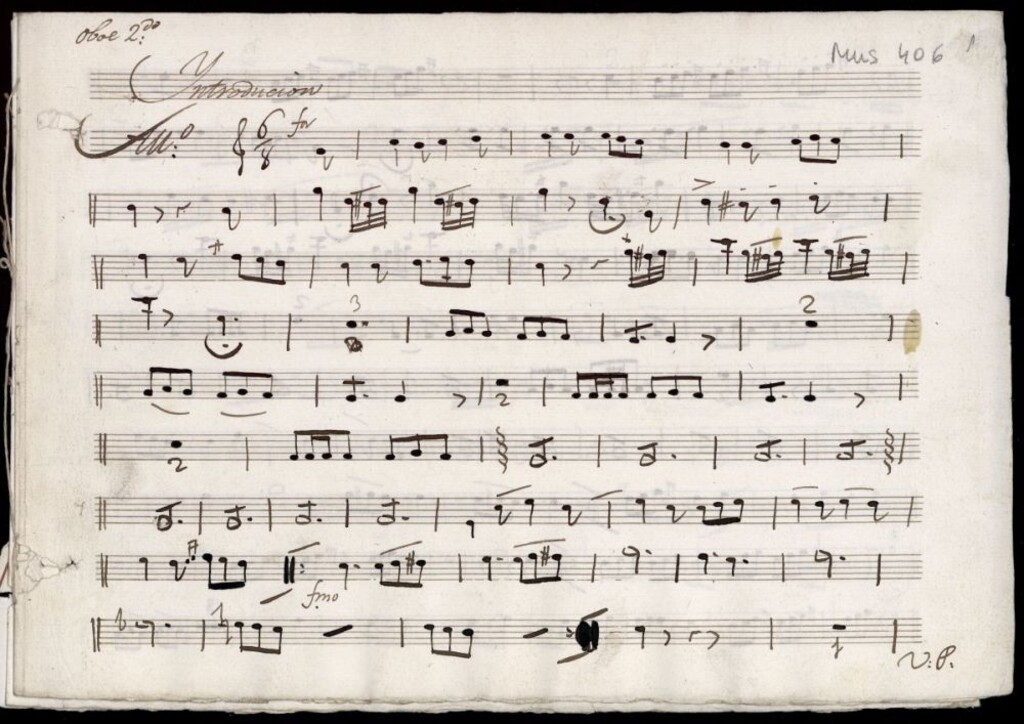 Oboe 2.do
Mus 406
Introducion
All.o 6/8 for
3
2
2
2
fmo
V: P.